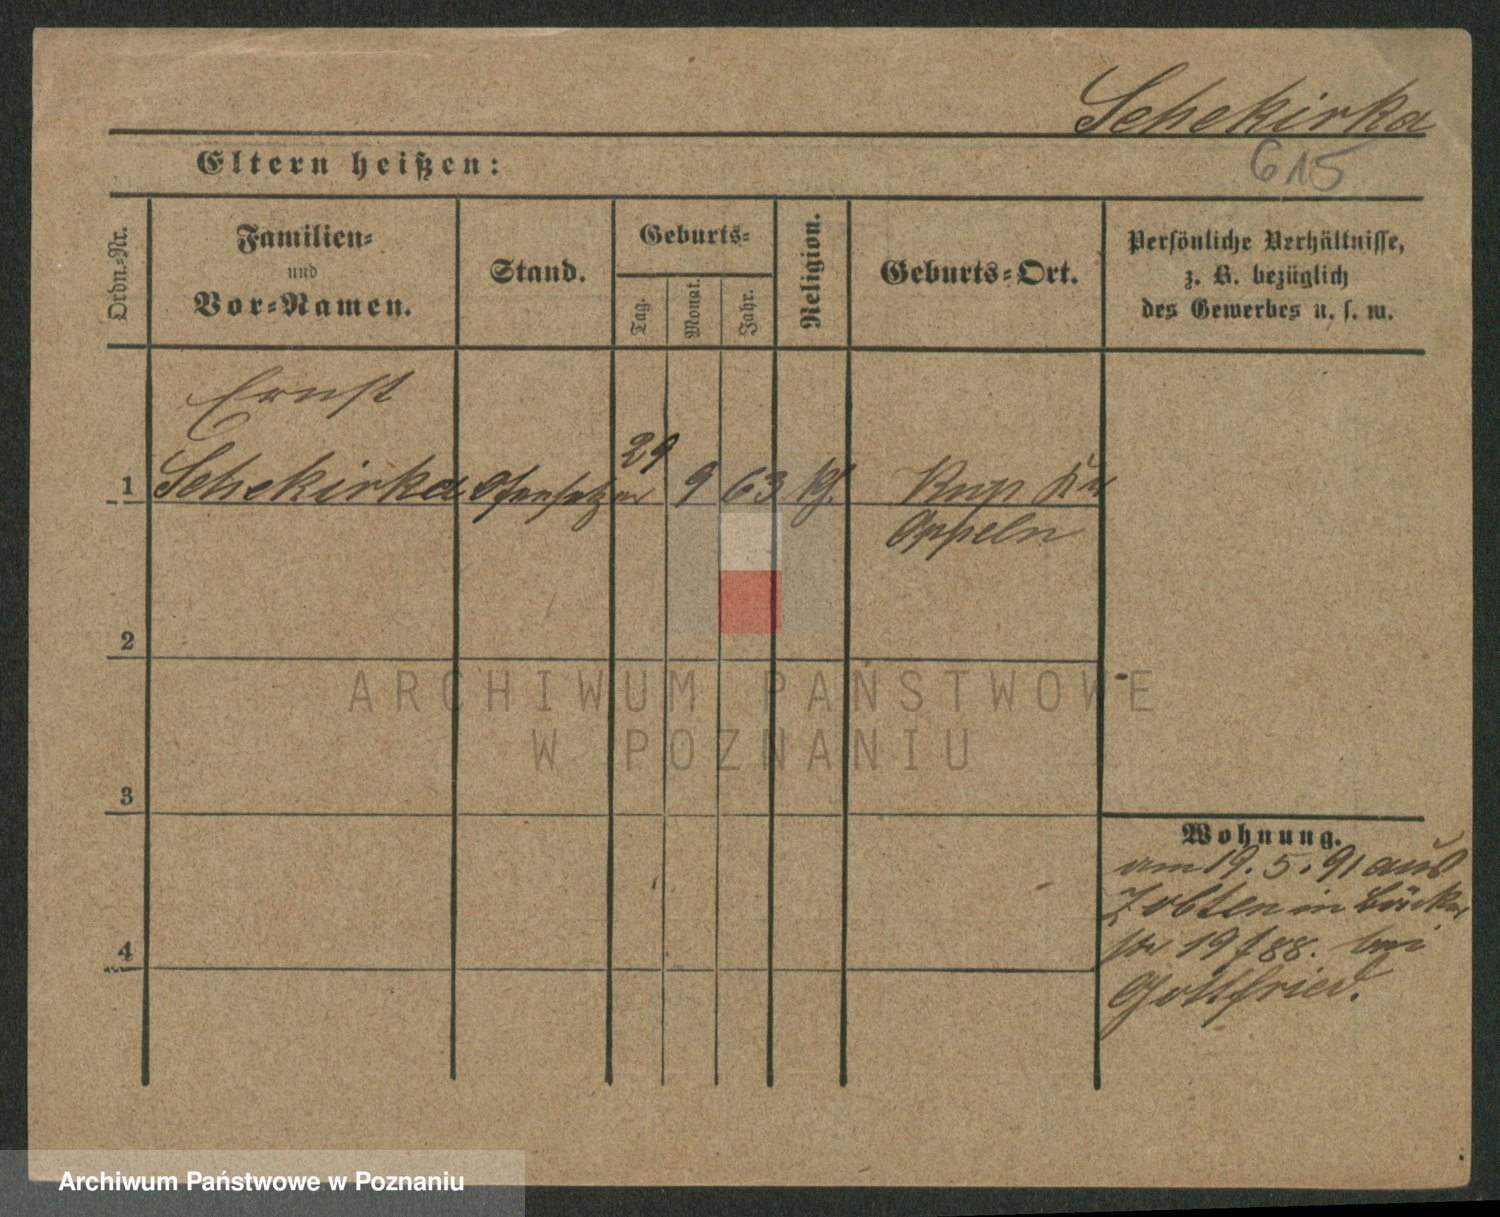 Schekirka
615
Eltern heißen:
Ordn.-Nr.
Familien-
und
Vor-Namen.
Stand.
Geburts-
Tag.
Monat.
Jahr.
Religion.
Geburts-Ort.
Persönliche Verhältnisse,
z. B. bezüglich
des Gewerbes u. s. w.
Ernst
1 Schekirka Ofensetzer 29 9 63 Kupp
Oppeln
2
3
4
Wohnung.
am 19.5.91 aus
Zobten in Bäcker
str 19 bei
Gottfried.
ARCHIWUM PAŃSTWOWE
W POZNANIU
Archiwum Państwowe w Poznaniu